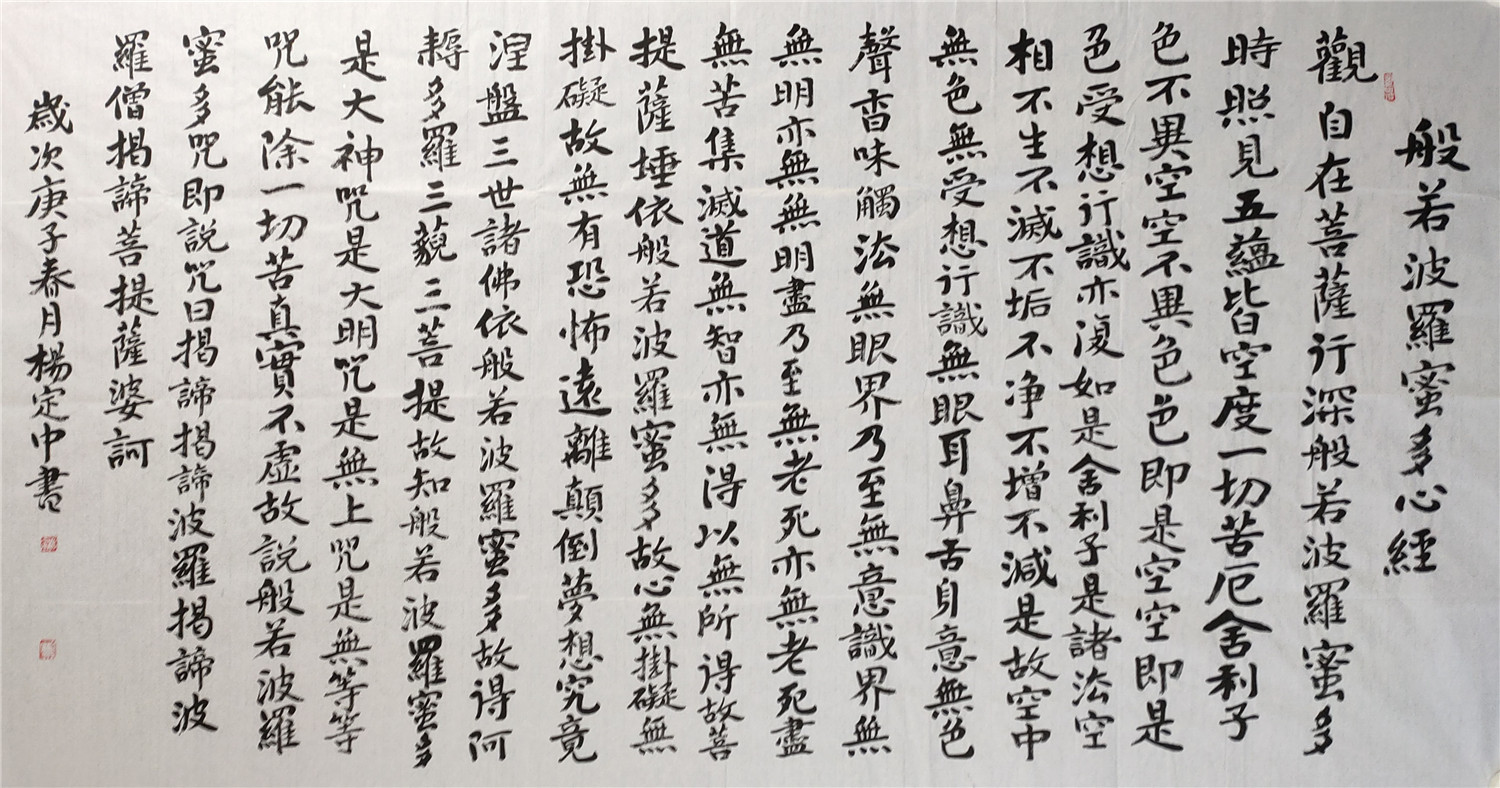 般若波羅蜜多心經
觀自在菩薩行深般若波羅蜜多
時照見五蘊皆空度一切苦厄舍利子
色不異空空不異色色即是空空即是
色受想行識亦復如是舍利子是諸法空
相不生不滅不垢不净不增不減是故空中
無色無受想行識無眼耳鼻舌身意無色
聲香味觸法無眼界乃至無意識界無
無明亦無無明盡乃至無老死亦無老死盡
無苦集滅道無智亦無得以無所得故菩
提薩埵依般若波羅蜜多故心無掛礙無
掛礙故無有恐怖遠離顛倒夢想究竟
涅盤三世諸佛依般若波羅蜜多故得阿
耨多羅三藐三菩提故知般若波羅蜜多
是大神咒是大明咒是無上咒是無等等
咒能除一切苦真實不虛故說般若波羅
蜜多咒即說咒曰揭諦揭諦波羅揭諦波
羅僧揭諦菩提薩婆訶
歲次庚子春月楊定中書